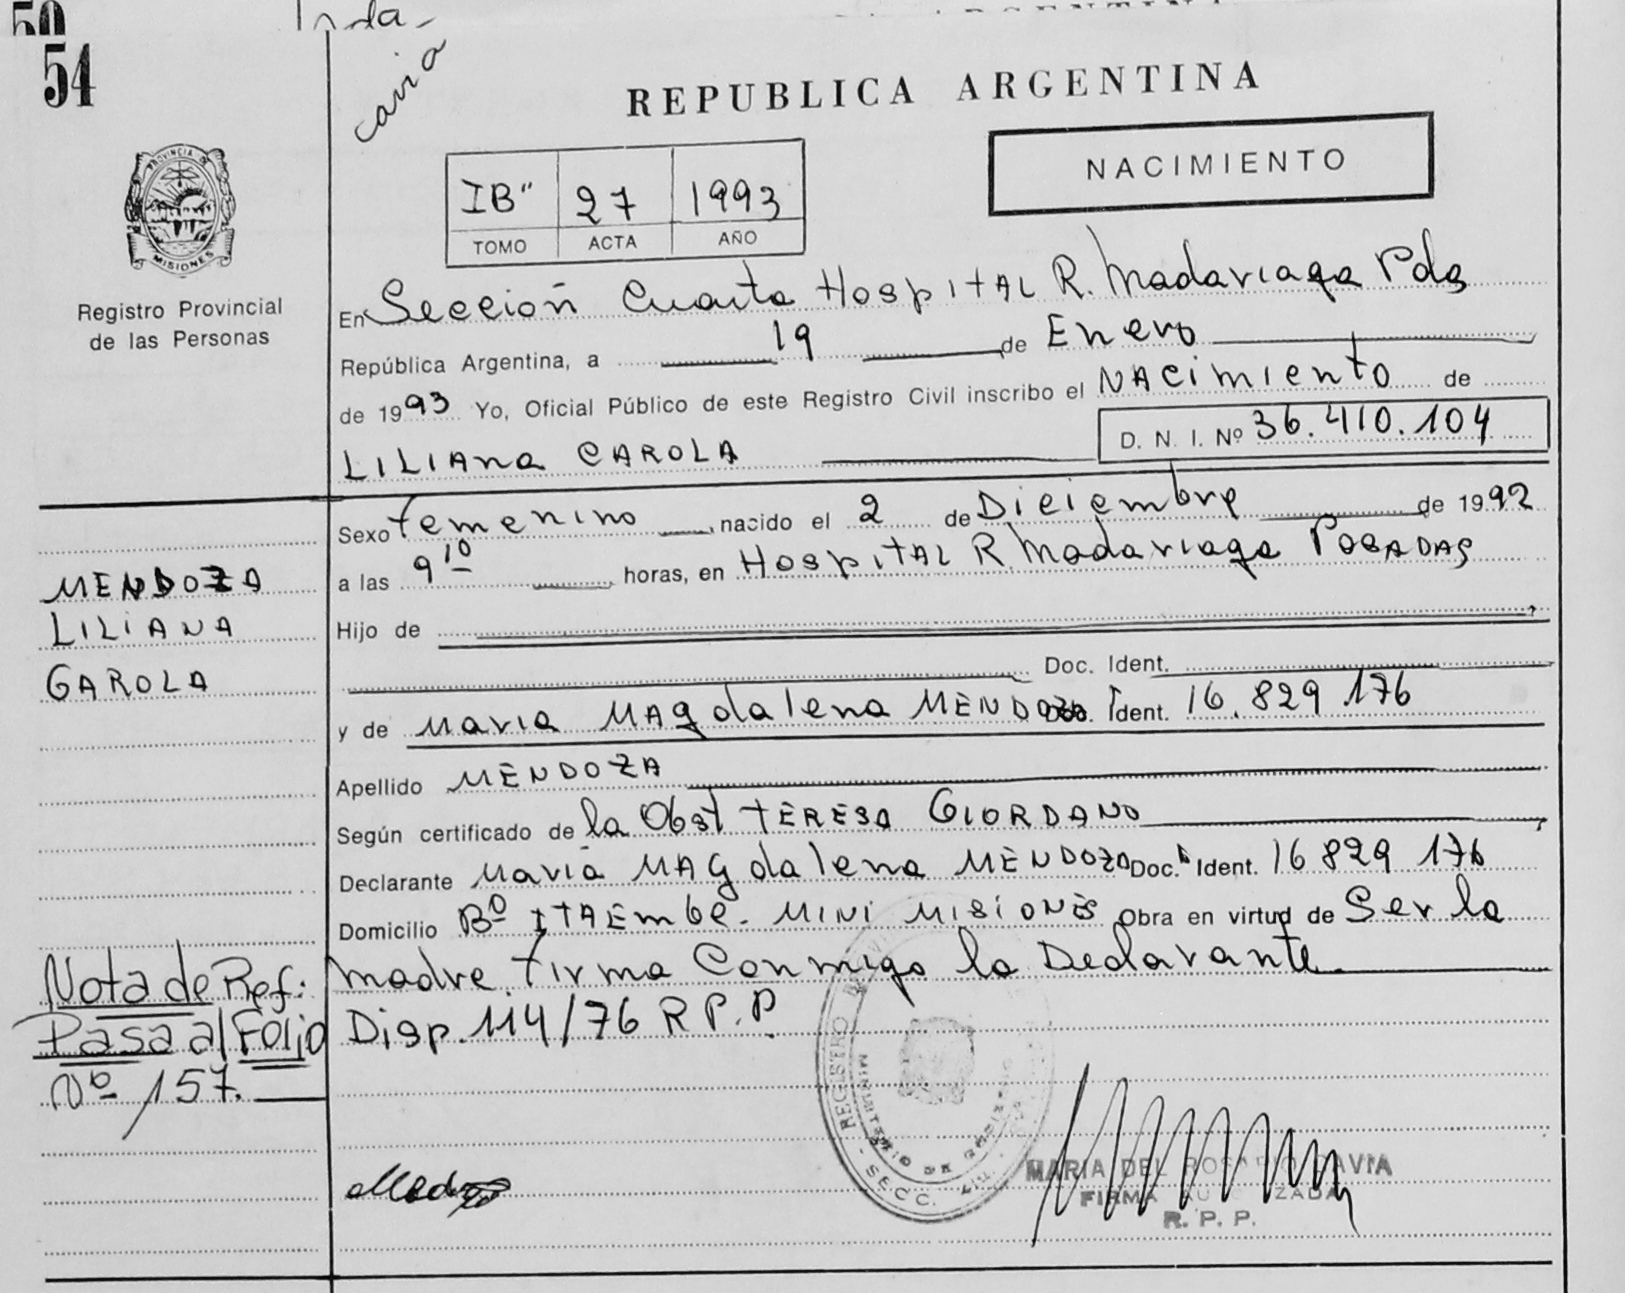 54
cavia
REPUBLICA ARGENTINA
PROVINCIA DE
MISIONES
Registro Provincial
de las Personas
IB" 27 1993
TOMO ACTA AÑO
NACIMIENTO
En Sección Cuarta Hospital R. Madariaga Pdas
República Argentina, a 19 de Enero
de 1993 Yo, Oficial Público de este Registro Civil inscribo el Nacimiento de
LILIANA CAROLA D. N. I. Nº 36.410.104
Sexo femenino, nacido el 2 de Diciembre de 1992
a las 9 10 horas, en Hospital R. Madariaga POSADAS
Hijo de
Doc. Ident.
y de Maria Magdalena MENDOZA Doc. Ident. 16.829.176
Apellido MENDOZA
Según certificado de la Obst TERESA GIORDANO
Declarante Maria Magdalena MENDOZA Doc. Ident. 16 829 176
Domicilio Bº ITAEmbe. MINI MISIONES Obra en virtud de Ser la
madre. firma Conmigo la Declarante
Disp. 114/76 R P. P
MENDOZA
LILIANA
CAROLA
Nota de Ref:
Pasa al Folio
Nº 157.
REGISTRO
MINISTERIO DE GOBIERNO
SECC.
MARIA DEL ROSARIO CAVIA
FIRMA AUTORIZADA
R. P. P.